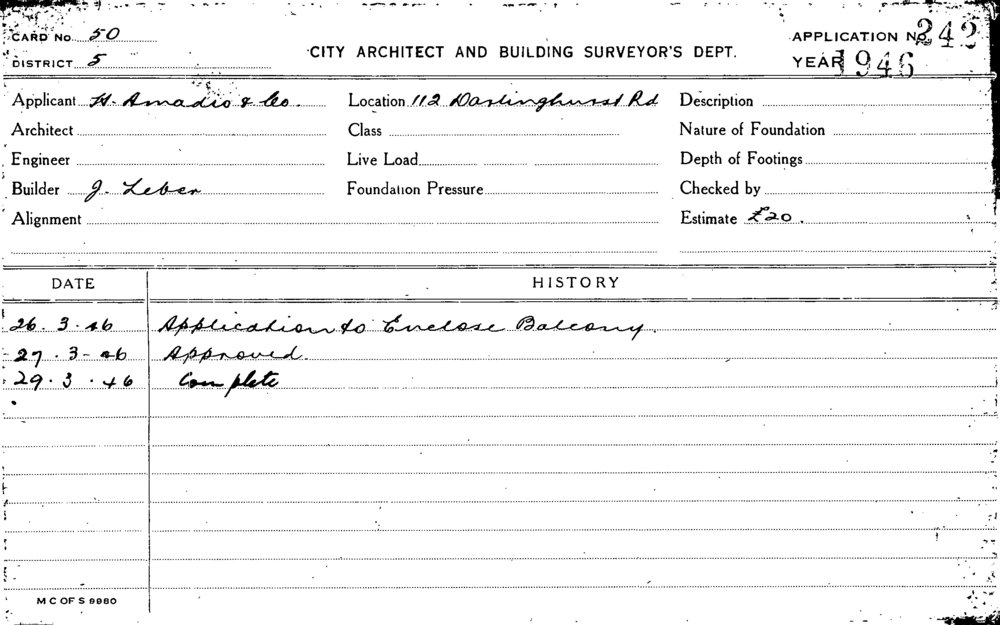 CARD No. 50
DISTRICT 5
CITY ARCHITECT AND BUILDING SURVEYOR'S DEPT.
APPLICATION No. 242
YEAR 1946
Applicant H. Amadio & Co. Location 112 Darlinghurst Rd Description
Architect Class Nature of Foundation
Engineer Live Load Depth of Footings
Builder J. Leber Foundation Pressure Checked by
Alignment Estimate £20.
DATE HISTORY
26.3.46 Application to Enclose Balcony.
27.3-46 Approved.
29.3.46 Complete
M C OF S 9980